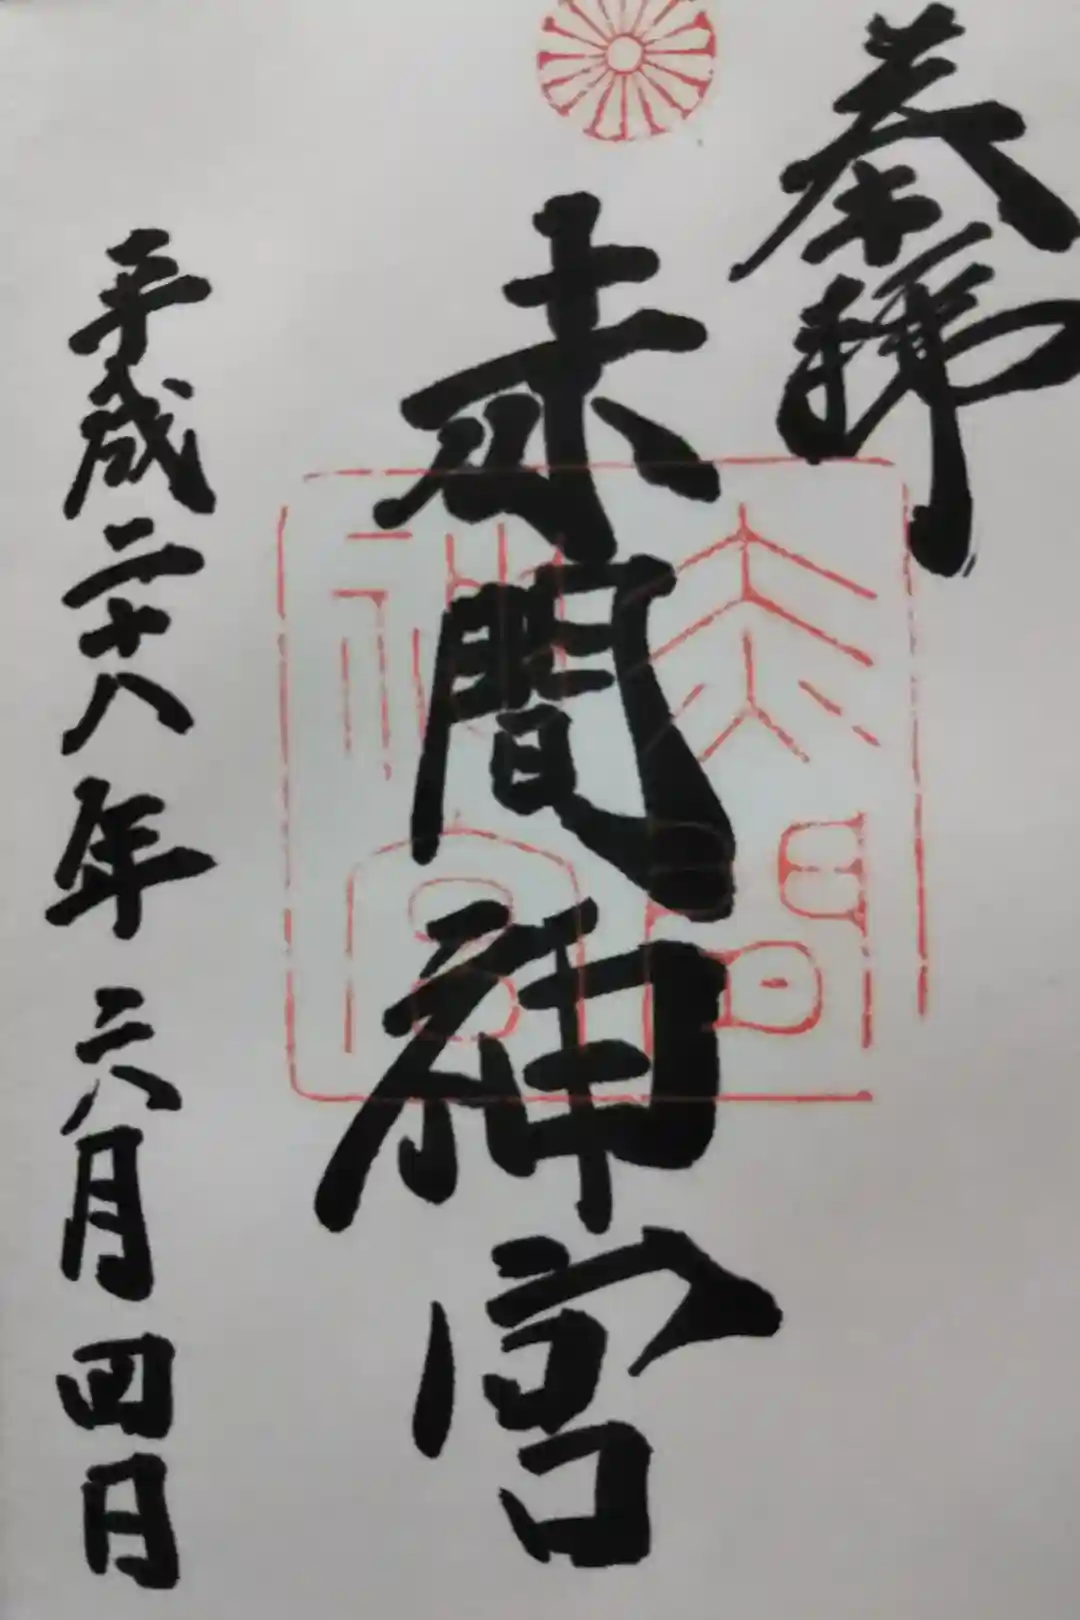 奉拝
赤間神宮
平成二十八年六月四日
赤間
神宮